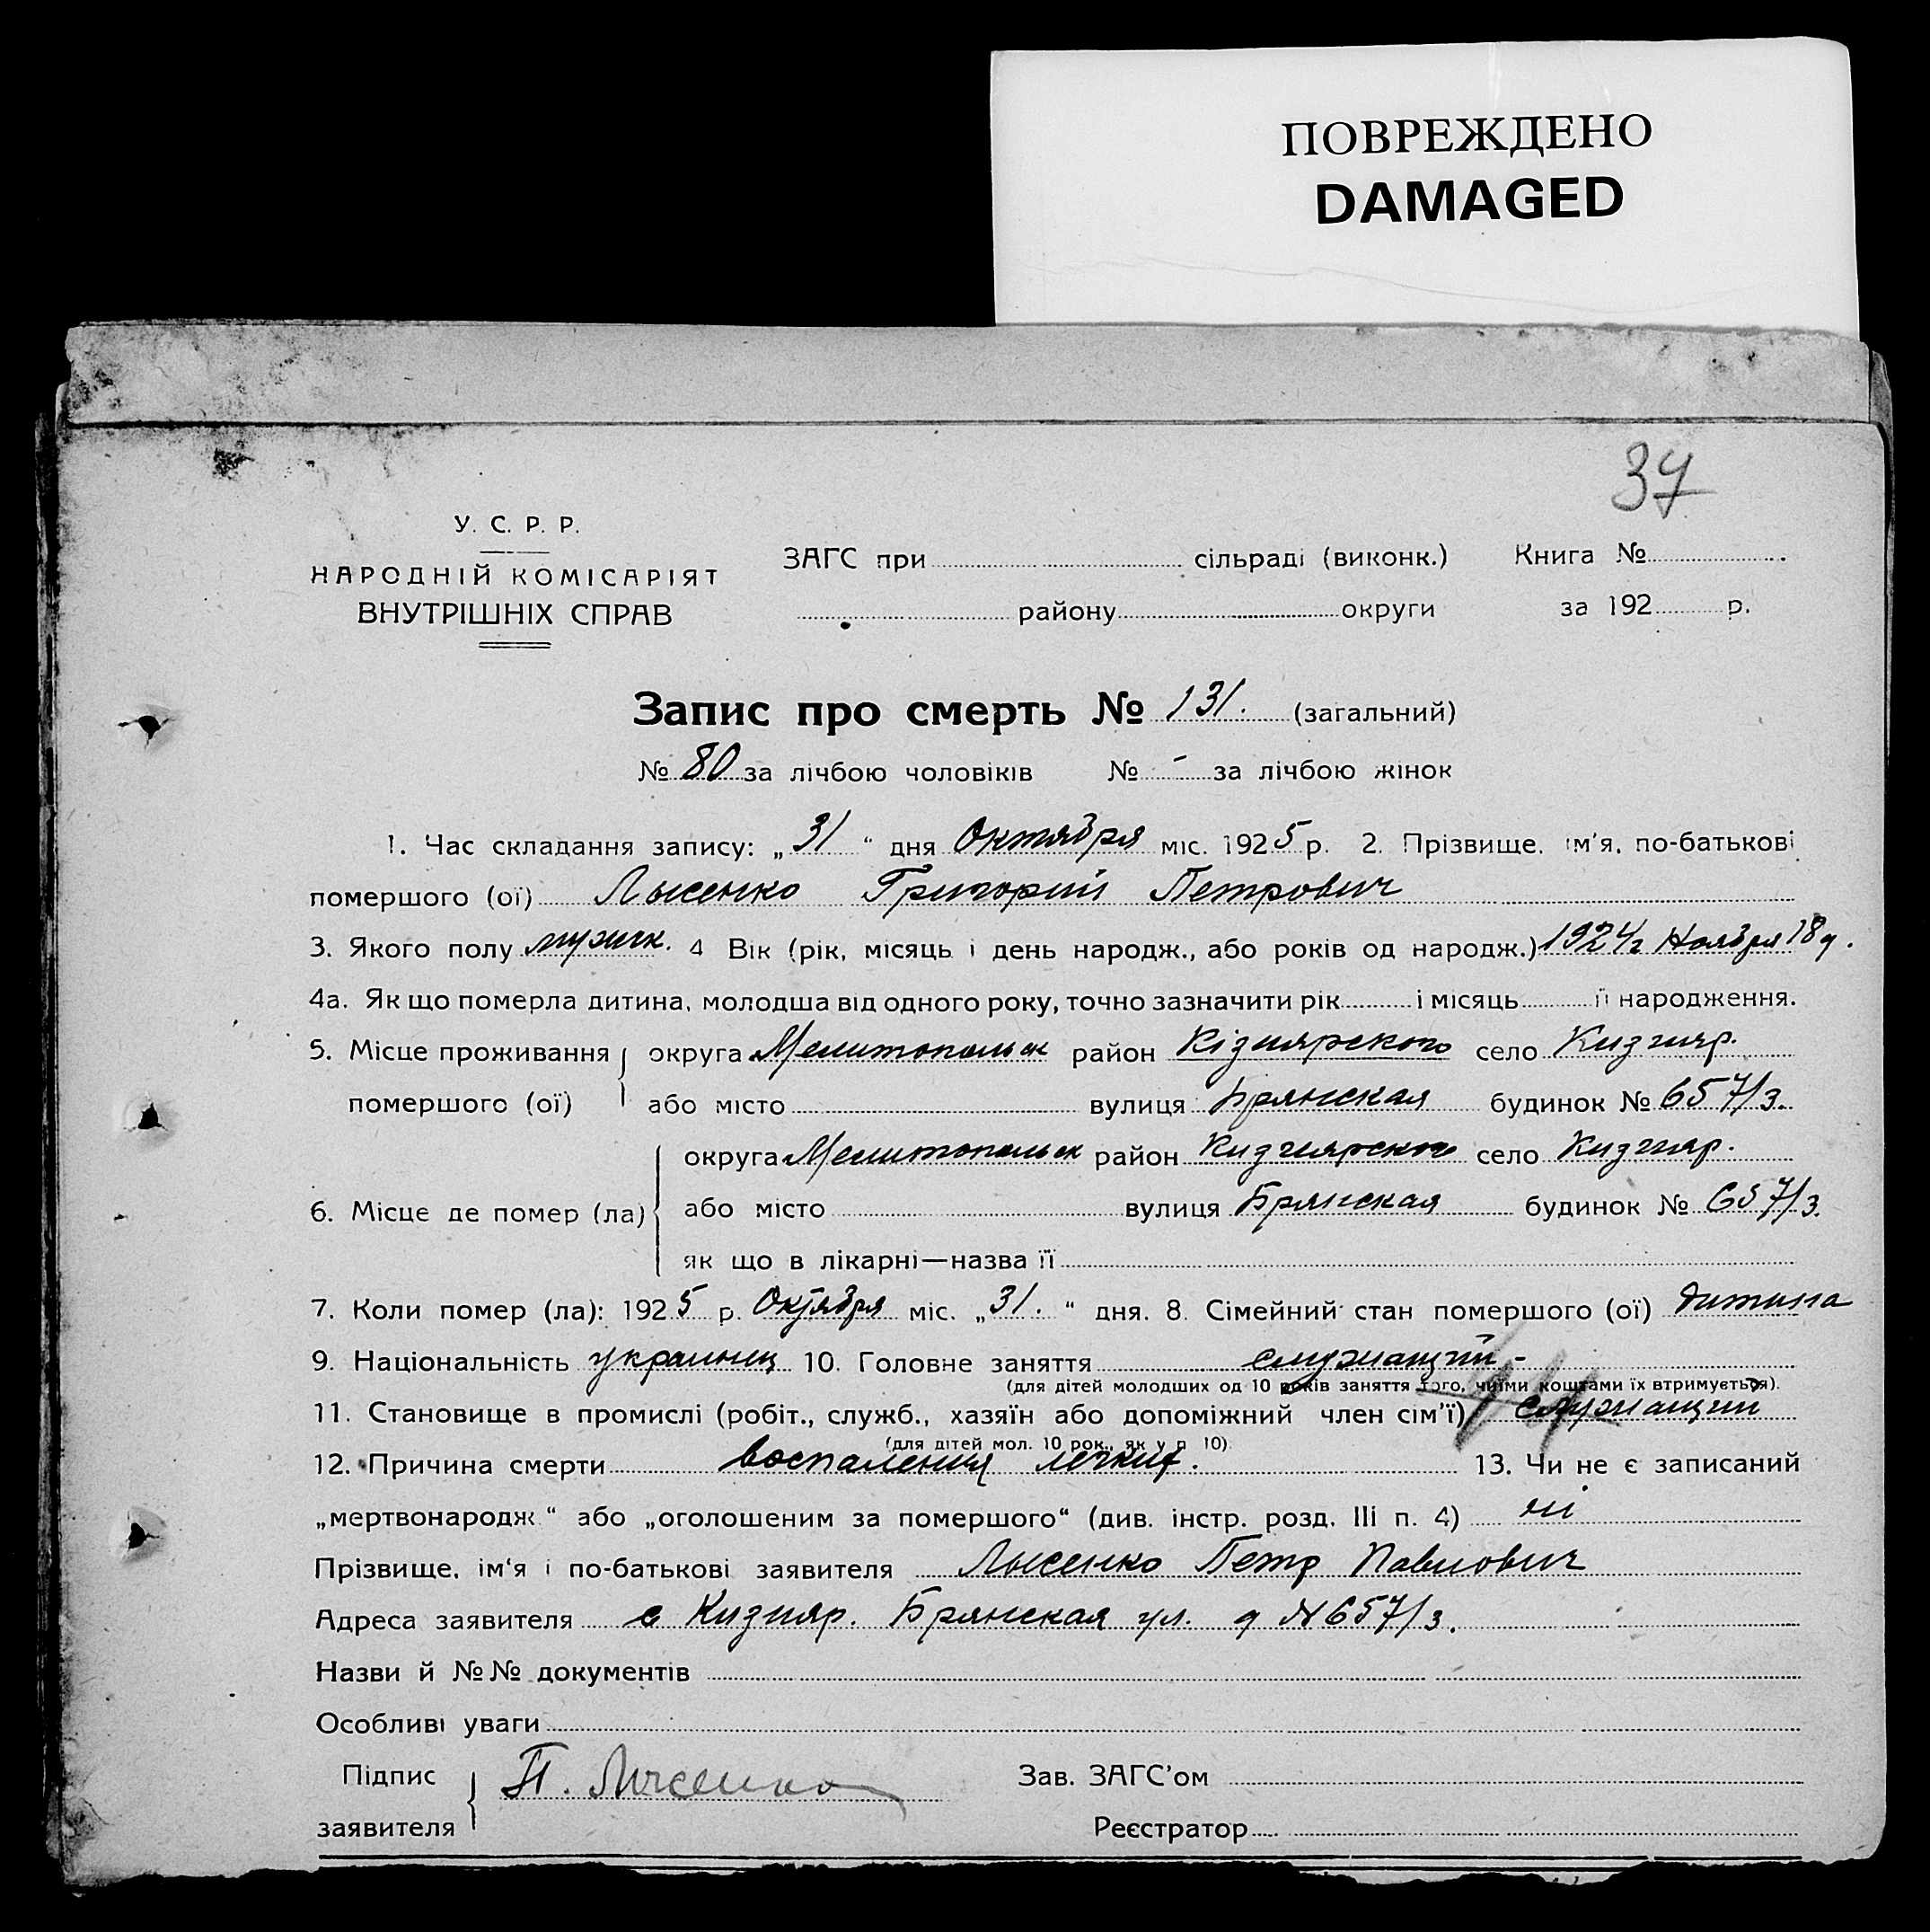 ПОВРЕЖДЕНО
DAMAGED
37
У. С. Р. Р.
НАРОДНІЙ КОМІСАРІЯТ
ВНУТРІШНІХ СПРАВ
ЗАГС при сільраді (виконк.) Книга №
району округи за 192 р.
Запис про смерть № 131. (загальний)
№ 80 за лічбою чоловіків № - за лічбою жінок
1. Час складання запису: „31“ дня Октября міс. 1925 р. 2. Прізвище, ім'я, по-батькові
помершого (ої) Лысенко Григорий Петрович
3. Якого полу мужск. 4 Вік (рік, місяць і день народж., або років од народж.) 1924 г Ноября 18 д.
4а. Як що померла дитина, молодша від одного року, точно зазначити рік і місяць її народження.
5. Місце проживання округа Мелитопольск район Кізиярского село Кизияр.
помершого (ої) або місто вулиця Брянская будинок № 657/3.
округа Мелитопольск район Кизиярского село Кизияр.
6. Місце де помер (ла) або місто вулиця Брянская будинок № 657/3.
як що в лікарні—назва її
7. Коли помер (ла): 1925 р. Октября міс. „31.“ дня. 8. Сімейний стан помершого (ої) дитина
9. Національність украинец 10. Головне заняття служащий -
(для дітей молодших од 10 років заняття того, чиїми коштами їх втримується).
11. Становище в промислі (робіт., служб., хазяїн або допоміжний член сім'ї) служащий
(для дітей мол. 10 рок., як у п 10)
12. Причина смерти воспаления легких. 13. Чи не є записаний
„мертвонародж“ або „оголошеним за помершого“ (див. інстр. розд. III п. 4) ні
Прізвище, ім'я і по-батькові заявителя Лысенко Петр Павлович
Адреса заявителя с Кизияр. Брянская ул. д № 657/3.
Назви й №№ документів
Особливі уваги
Підпис П. Лысенко Зав. ЗАГС'ом
заявителя Реєстратор